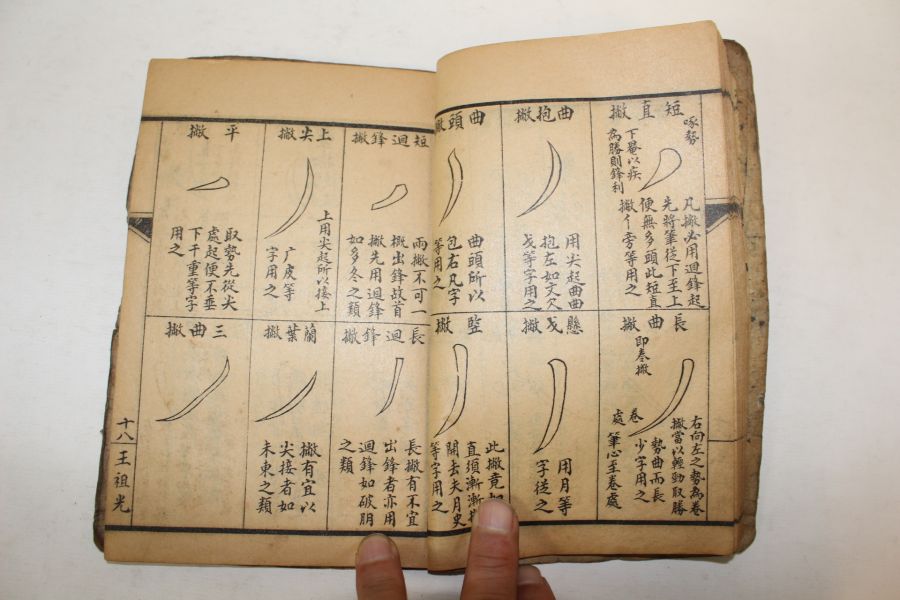 短直撇
啄勢
下罨以疾
為勝則鋒利
凡撇必用迴鋒起
先將筆從下至上
便無多頭此短直
撇亻旁等用之
長曲撇
即奉撇
右向左之勢為卷
撇當以輕勁取勝
勢曲而長
少字用之
卷
處筆心至卷處
曲抱撇
用尖起曲曲
抱左如文欠
戈等字用之
懸戈撇
用月等
字從之
曲頭撇
曲頭所以
包右凡字
等用之
監撇
此撇竟
直須漸漸
開去夫月史
等字用之
短迴鋒撇
兩撇不可一
概出鋒故首
撇先用迴鋒
如多冬之類
長迴鋒撇
長撇有不宜
出鋒者亦用
迴鋒如破朋
之類
上尖撇
上用尖起所以接上
广皮等
字用之
蘭葉撇
撇有宜以
尖接者如
未東之類
平撇
取勢先從尖
處起便不垂
下千重等字
用之
三曲撇
十八
王祖光